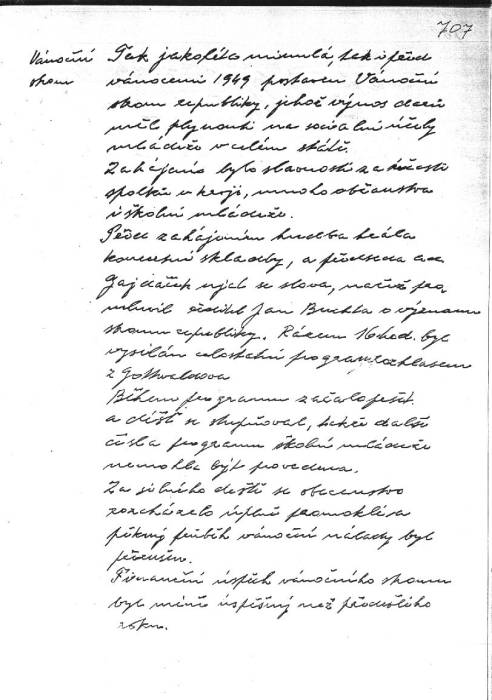 707
Vánoční
strom
Tak jako léta minulá, tak i před
vánocemi 1949 postaven Vánoční
strom republiky, jehož výnos darů
měl plynouti na sociální účely
mládeže v celém státě.
Zahájeno bylo slavností za účasti
spolků v kraji, mnoho občanstva
i školní mládeže.
Před zahájením hudba hrála
koncertní skladby, a předseda
Gajdáček ujal se slova, načež pro
mluvil ředitel Jan Buchta o významu
stromu republiky. Rázem 16 hod. byl
vysílán celostátní program rozhlasem
z Gottwaldova
Během programu začalo pršet
a déšť se stupňoval, takže další
čísla programu školní mládeže
nemohla být provedena.
Za silného deště se obecenstvo
rozcházelo úplně promoklé a
pěkný průběh vánoční nálady byl
přerušen.
Finanční úspěch vánočního stromu
byl méně úspěšný než předešlého
roku.